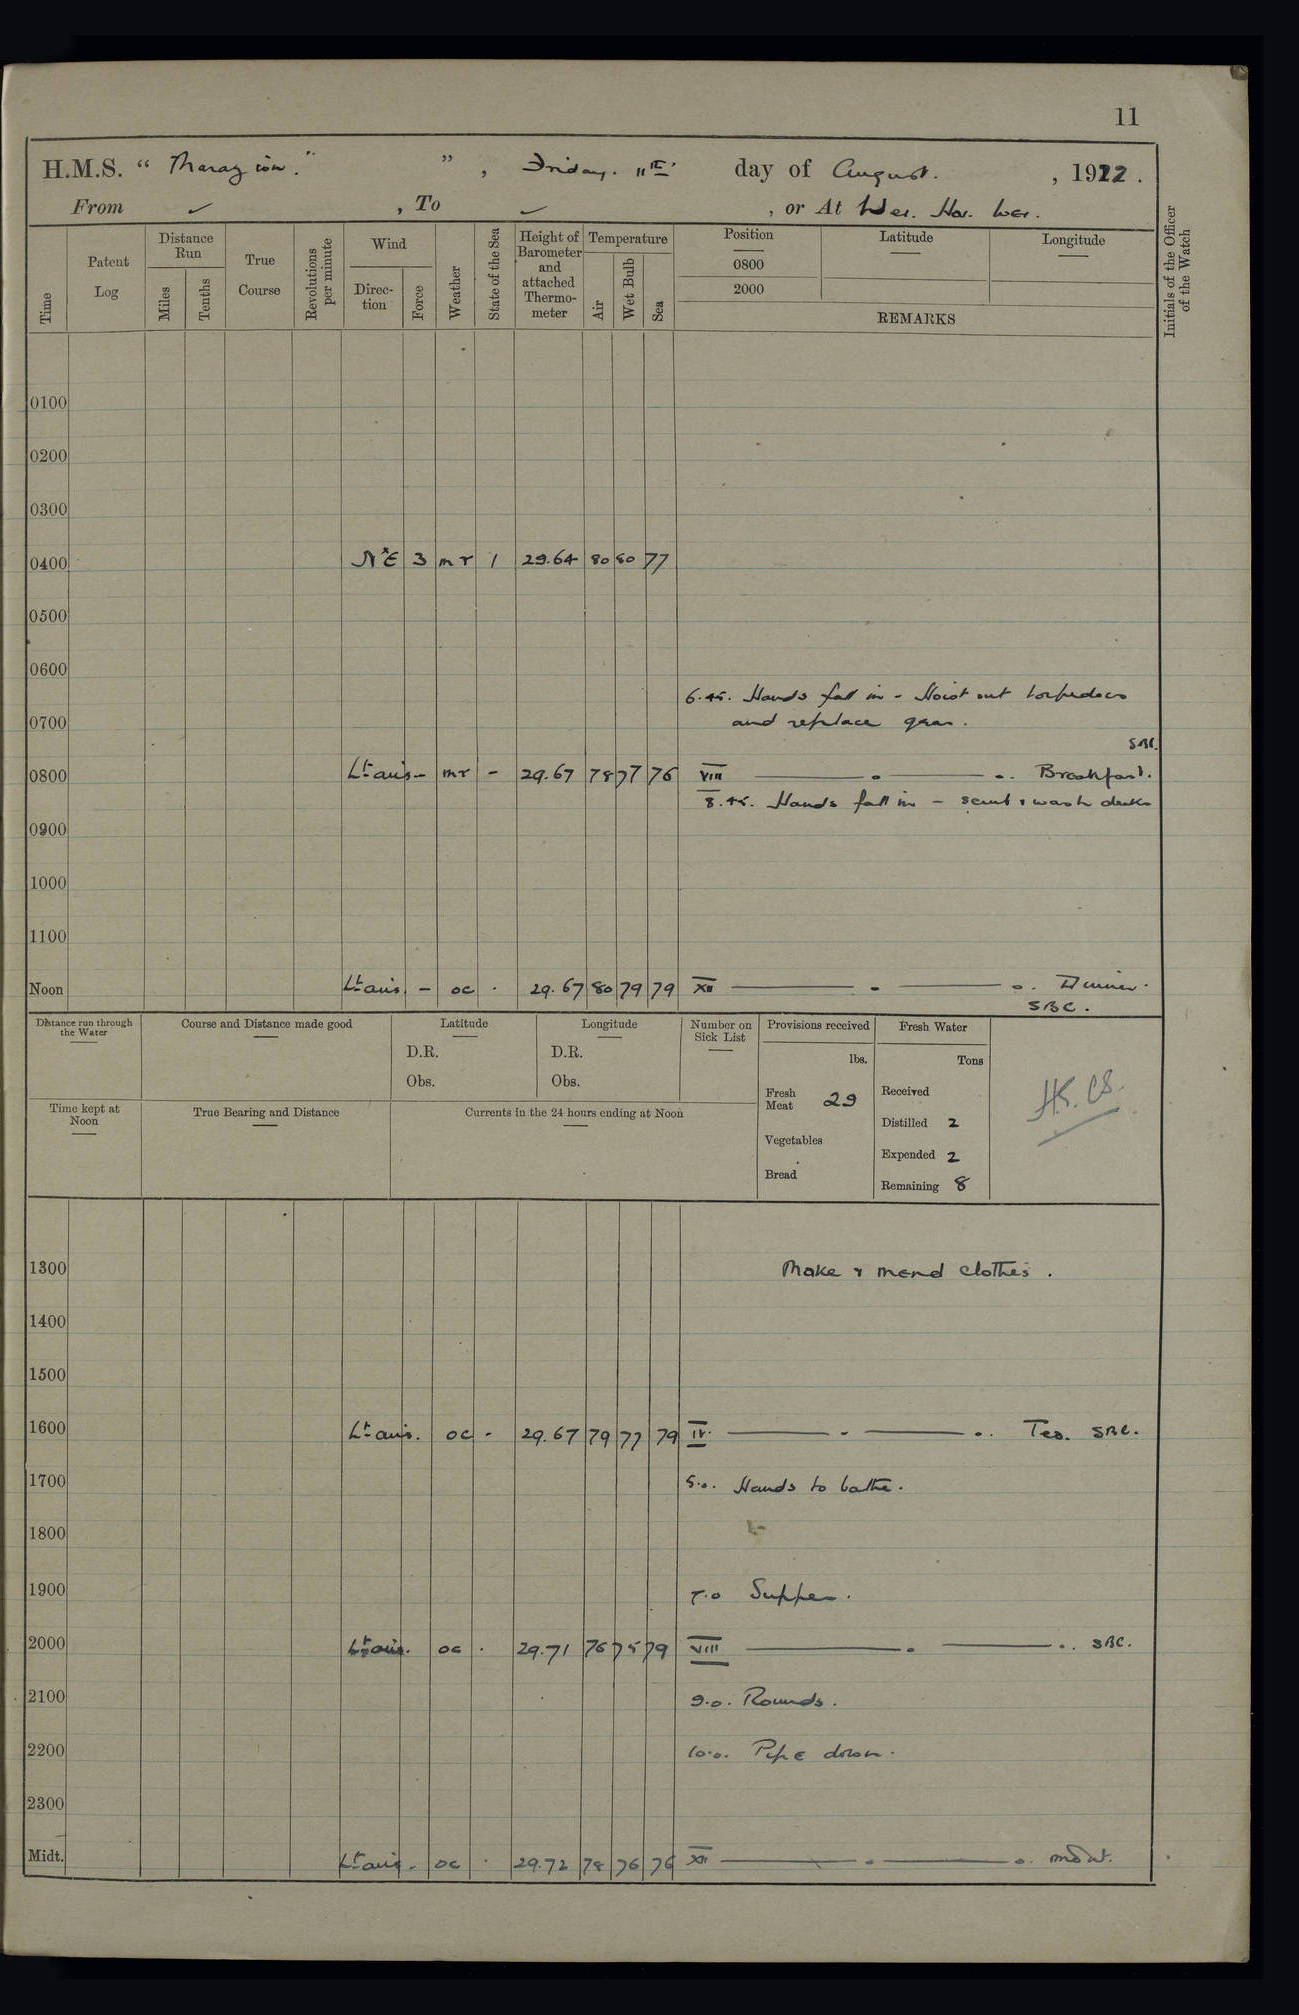 11
H.M.S. “ Marazion. ” , Friday. 11th day of August. , 1922.
From ✓ , To ✓ , or At Wei. Hai. Wei.
Time Patent Log Distance Run Miles Tenths True Course Revolutions per minute Wind Direction Force Weather State of the Sea Height of Barometer and attached Thermometer Temperature Air Wet Bulb Sea Position 0800 2000 Latitude Longitude
REMARKS
Initials of the Officer of the Watch
0100
0200
0300
0400 N'E 3 mr 1 29.64 80 80 77
0500
0600
6.45. Hands fall in - Hoist out torpedoes
0700 and replace gear.
SBC.
0800 Lt airs - mr - 29.67 78 77 76 VIII Breakfast.
8.45. Hands fall in - scrub & wash decks
0900
1000
1100
Noon Lt airs. - oc . 29.67 80 79 79 XII Dinner.
SBC.
Distance run through the Water Course and Distance made good Latitude Longitude Number on Sick List Provisions received Fresh Water
D.R. D.R. lbs. Tons
Obs. Obs. Fresh Meat 29 Received
Time kept at Noon True Bearing and Distance Currents in the 24 hours ending at Noon Distilled 2
Vegetables Expended 2
Bread Remaining 8
1300 Make & mend clothes.
1400
1500
1600 Lt airs. oc - 29.67 79 77 79 IV. Tea. SBC.
1700 5.0. Hands to bathe.
1800
1900 7.0 Supper.
2000 Lt airs. oc . 29.71 76 75 79 VIII SBC.
2100 9.0. Rounds.
2200 10.0. Pipe down.
2300
Midt. Lt airs. oc . 29.72 78 76 76 XII